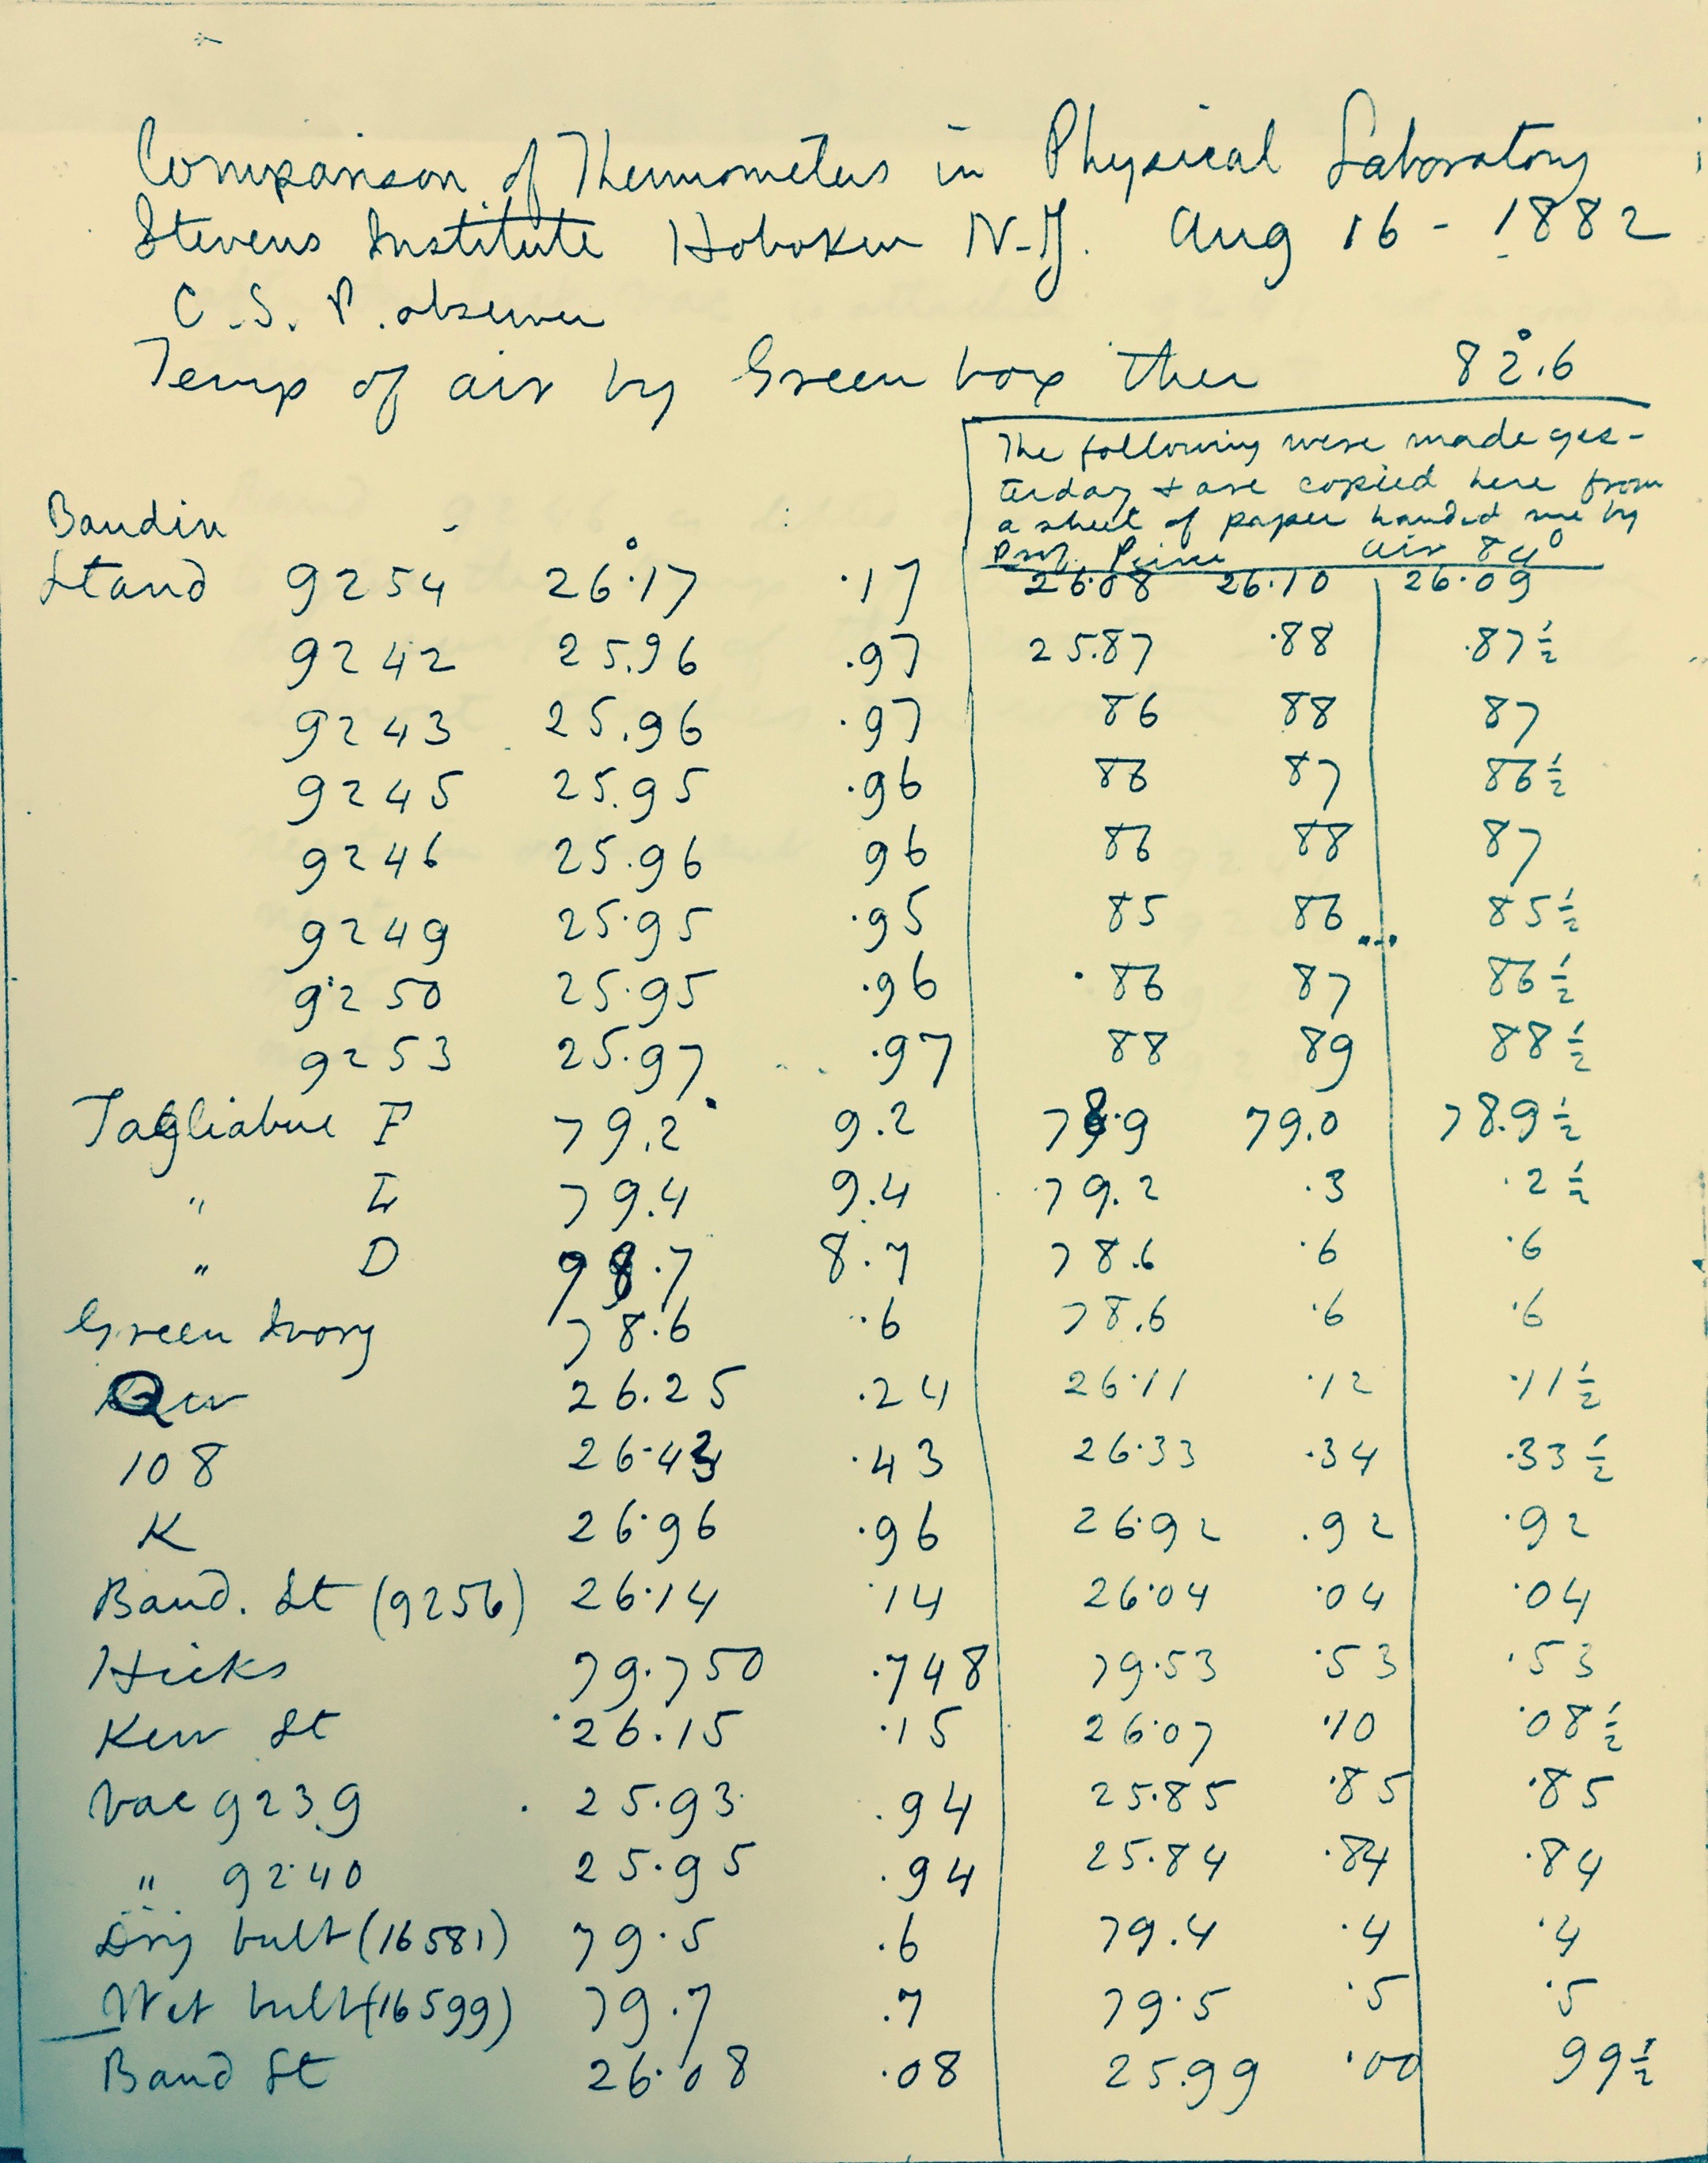 Comparison of Thermometers in Physical Laboratory
Stevens Institute Hoboken N-J. Aug 16 - 1882
C.S.P. observer
Temp of air by Green box Ther 82°.6
The following were made yes-
terday & are copied here from
a sheet of paper handed me by
Prof. Peirce air 84°
Baudin
Stand 9254 26°.17 .17 26.08 26.10 26.09
9242 25.96 .97 25.87 .88 .87½
9243 25.96 .97 86 88 87
9245 25.95 .96 86 87 86½
9246 25.96 96 86 88 87
9249 25.95 .95 85 86 85½
9250 25.95 .96 .86 87 86½
9253 25.97 .97 88 89 88½
Tagliabue F 79.2 9.2 78.9 79.0 78.9½
" L 79.4 9.4 79.2 .3 .2½
" D 98.7 8.7 78.6 .6 .6
Green Ivory 78.6 .6 78.6 .6 .6
26.25 .24 26.11 .12 .11½
108 26.43 .43 26.33 .34 .33½
K 26.96 .96 26.92 .92 .92
Baud. St (9256) 26.14 .14 26.04 .04 .04
Hicks 79.750 .748 79.53 .53 .53
Kew St 26.15 .15 26.07 .10 .08½
Vac 9239 25.93 .94 25.85 .85 .85
" 9240 25.95 .94 25.84 .84 .84
Dry bulb (16581) 79.5 .6 79.4 .4 .4
Wet bulb (16599) 79.7 .7 79.5 .5 .5
Baud St 26.08 .08 25.99 .00 99½